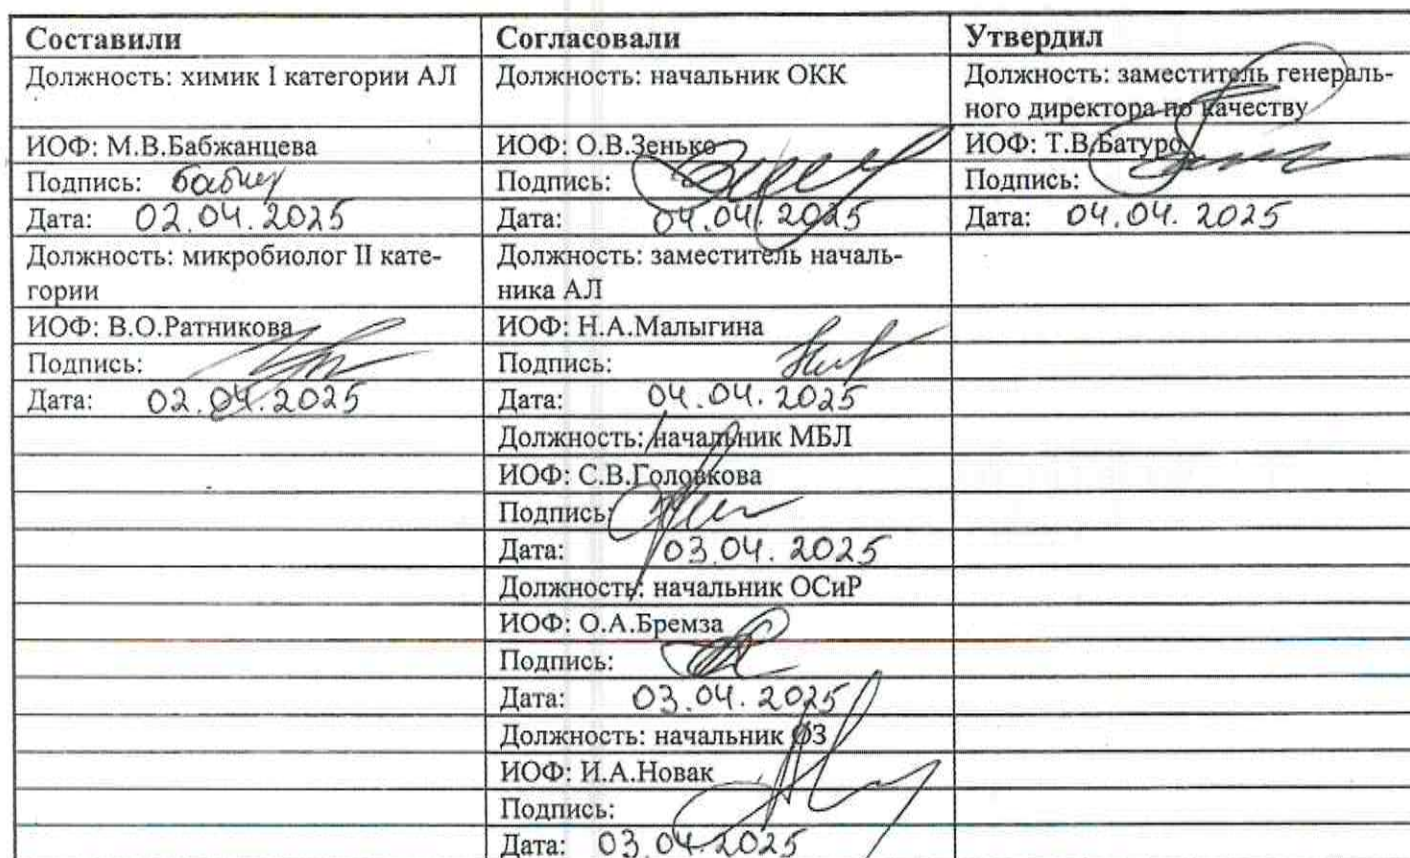 Составили Согласовали Утвердил
Должность: химик I категории АЛ Должность: начальник ОКК Должность: заместитель генераль-
ного директора по качеству
ИОФ: М.В.Бабжанцева ИОФ: О.В.Зенько ИОФ: Т.В.Батуро
Подпись: Подпись: Подпись:
Дата: 02.04.2025 Дата: 04.04.2025 Дата: 04.04.2025
Должность: микробиолог II кате- Должность: заместитель началь-
гории ника АЛ
ИОФ: В.О.Ратникова ИОФ: Н.А.Малыгина
Подпись: Подпись:
Дата: 02.04.2025 Дата: 04.04.2025
Должность: начальник МБЛ
ИОФ: С.В.Головкова
Подпись:
Дата: 03.04.2025
Должность: начальник ОСиР
ИОФ: О.А.Бремза
Подпись:
Дата: 03.04.2025
Должность: начальник ОЗ
ИОФ: И.А.Новак
Подпись:
Дата: 03.04.2025